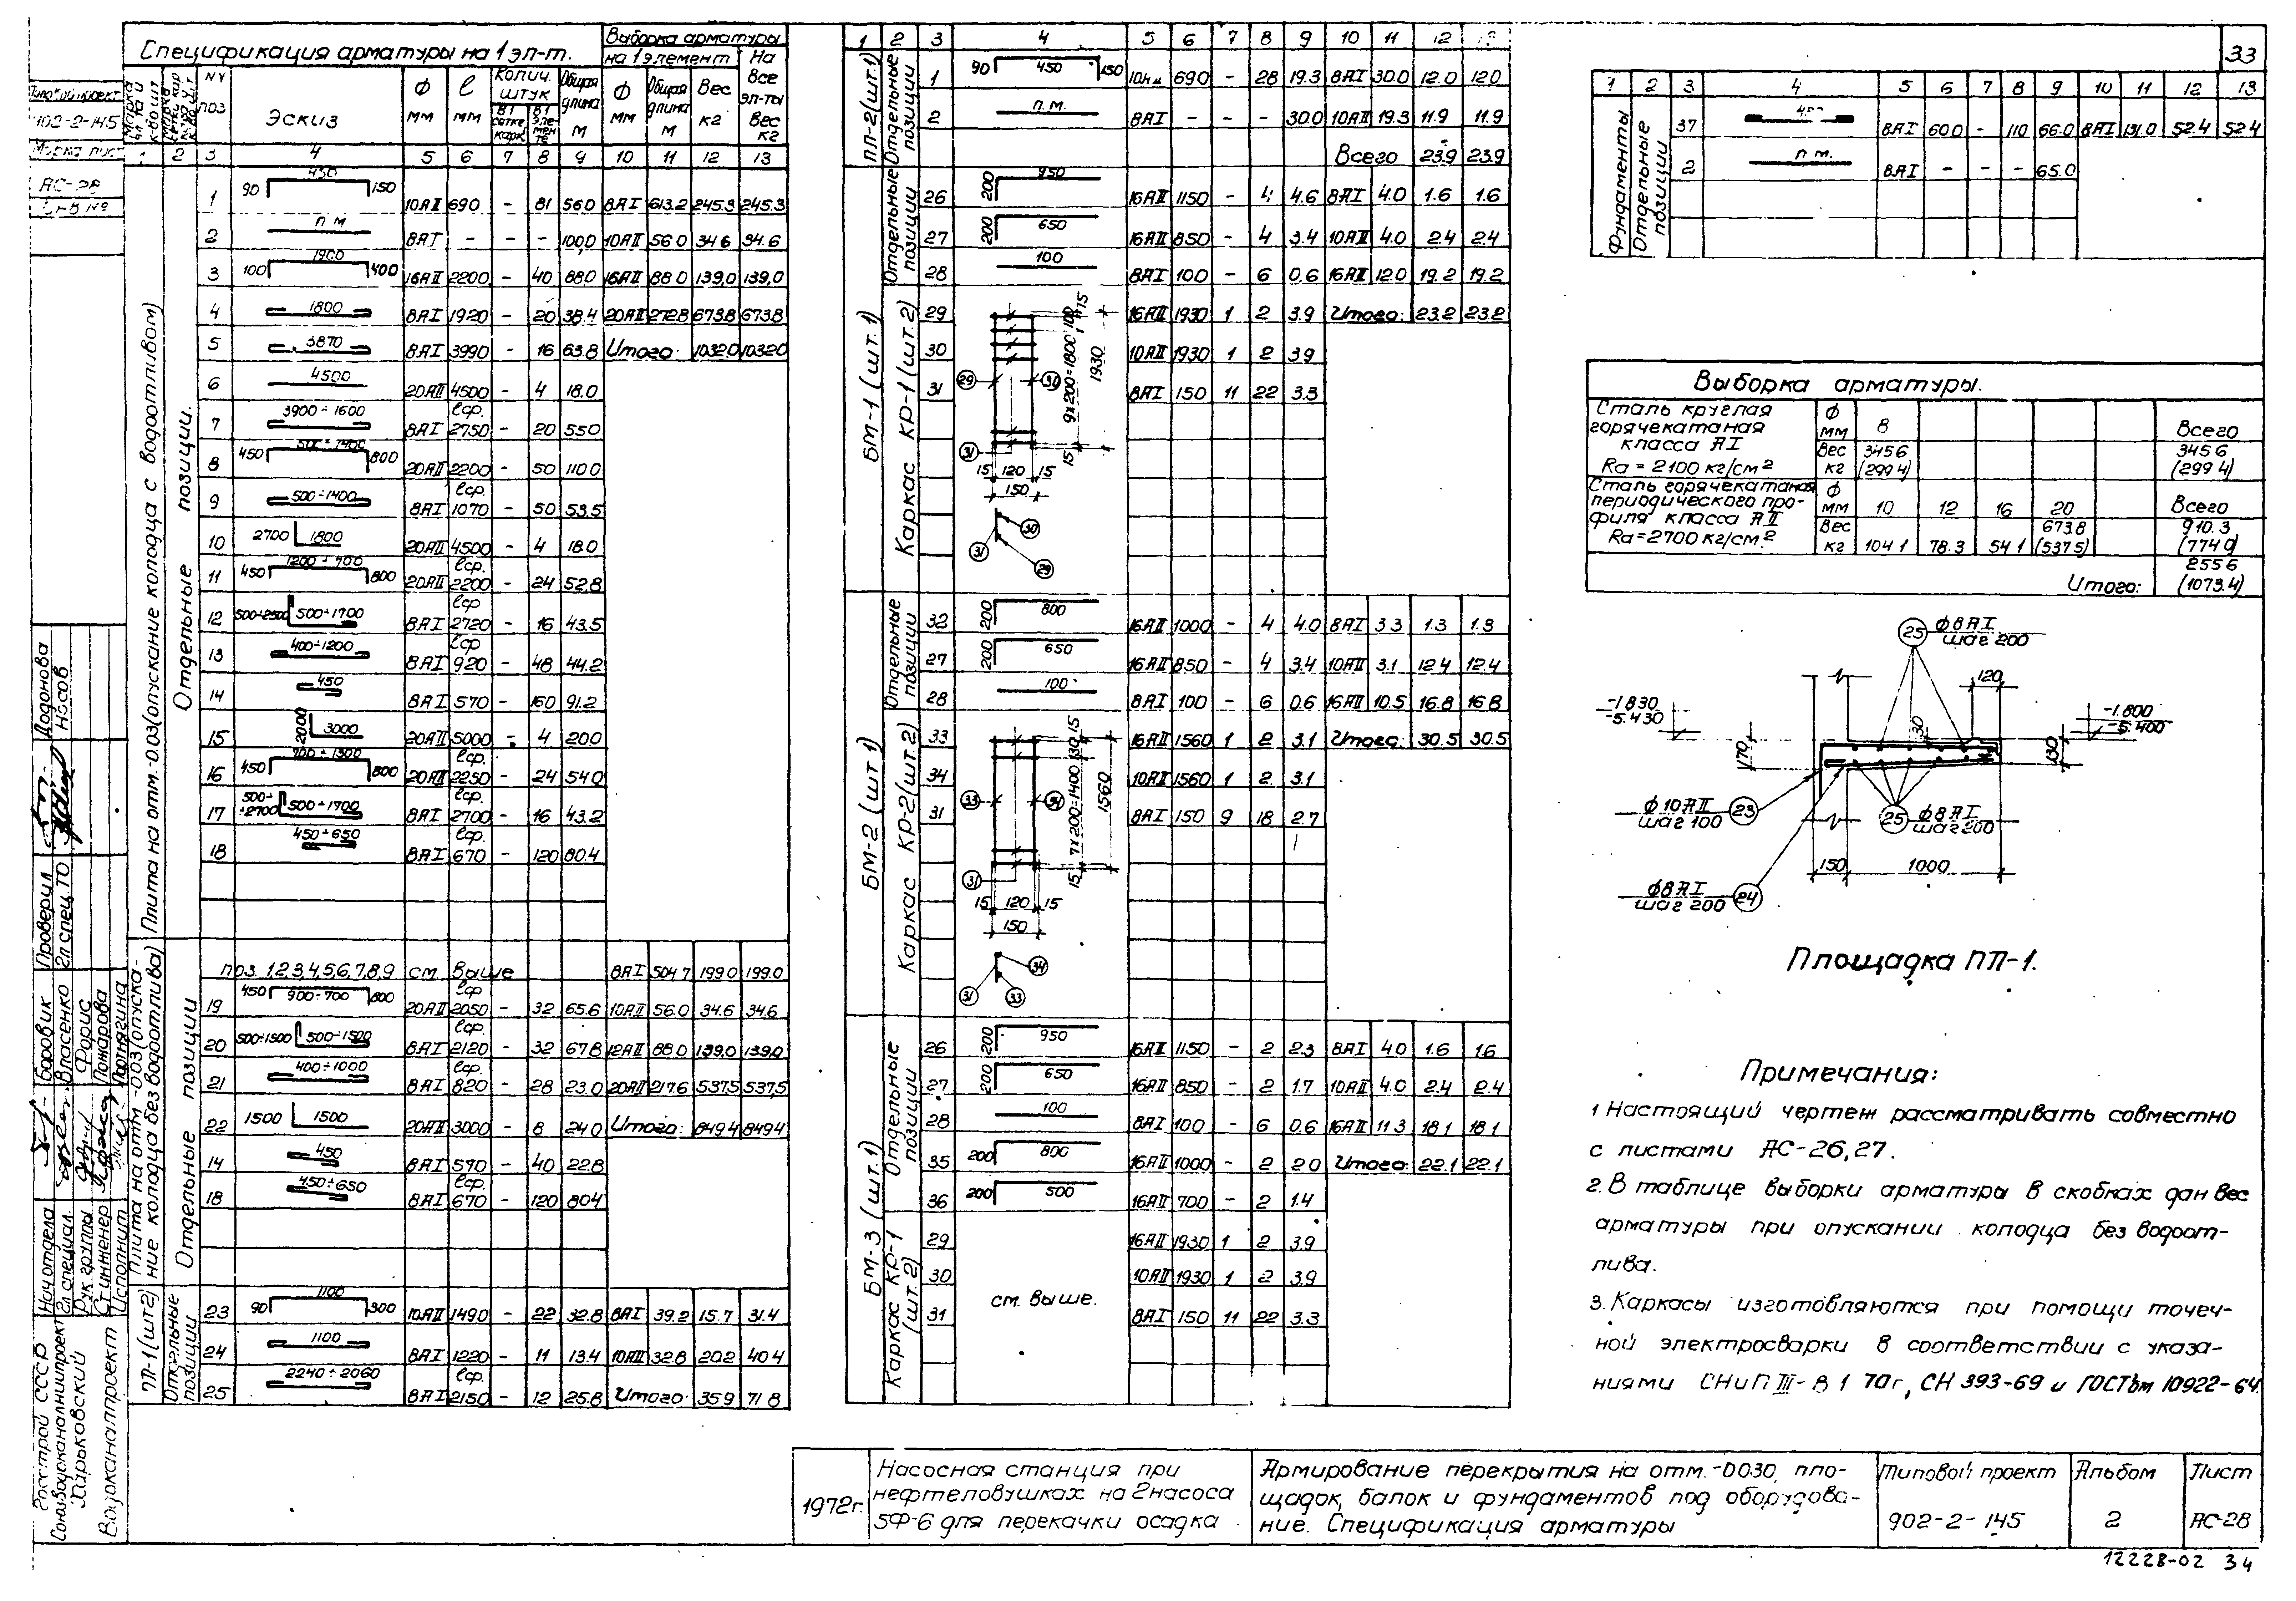 33
Типовой проект
902-2-145
Марка лист
АС-28
Инв №
Спецификация арматуры на 1 эл-т.
Выборка арматуры
на 1 элемент
На все эл-ты Вес кг
№№ поз
Эскиз
Ф мм
ℓ мм
Колич. штук
в 1 сетке карк.
в 1 элементе
Общая длина м
Ф мм
Общая длина м
Вес кг
1 2 3 4 5 6 7 8 9 10 11 12 13
Плита на отм.-0.03(опускание колодца с водоотливом)
Отдельные позиции.
1 90 450 150 10АII 690 - 81 56.0 8АI 613.2 245.3 245.3
2 п.м 8АI - - - 100.0 10АII 56.0 34.6 34.6
3 100 1900 400 16АII 2200 - 40 88.0 16АII 88.0 139,0 139,0
4 1800 8АI 1920 - 20 38.4 20АII 272.8 673.8 673.8
5 3870 8АI 3990 - 16 63.8 Итого: 1032.0 1032.0
6 4500 20АII 4500 - 4 18.0
7 3900÷1600 8АI ℓср. 2750 - 20 55.0
8 450 500÷1400 800 20АII 2200 - 50 110.0
9 500÷1400 8АI ℓср. 1070 - 50 53.5
10 2700 1800 20АII 4500 - 4 18.0
11 450 1200÷700 800 20АII ℓср. 2200 - 24 52.8
12 500÷2500 500÷1700 8АI ℓср 2720 - 16 43.5
13 400÷1200 8АI ℓср 920 - 48 44.2
14 450 8АI 570 - 160 91.2
15 2000 3000 20АII 5000 - 4 20.0
16 450 900÷1300 800 20АII ℓср. 2250 - 24 54.0
17 500÷2700 500÷1700 8АI ℓср. 2700 - 16 43.2
18 450÷650 8АI ℓср. 670 - 120 80.4
Плита на отм -0.03 (опускание колодца без водоотлива)
Отдельные позиции
поз. 1,2,3,4,5,6,7,8,9 см. выше 8АI 504.7 199.0 199.0
19 450 900÷700 800 20АII ℓср 2050 - 32 65.6 10АII 56.0 34.6 34.6
20 500÷1500 500÷1500 8АI ℓср. 2120 - 32 67.8 12АII 88.0 139,0 139,0
21 400÷1000 8АI ℓср. 820 - 28 23.0 20АII 217.6 537,5 537,5
22 1500 1500 20АII 3000 - 8 24.0 Итого: 849.4 849.4
14 450 8АI 570 - 40 22.8
18 450÷650 8АI ℓср. 670 - 120 80.4
ПП-1 (шт2)
Отдельные позиции
23 90 1100 300 10АII 1490 - 22 32.8 8АI 39.2 15.7 31.4
24 1100 8АI 1220 - 11 13.4 10АII 32.8 20.2 40.4
25 2240÷2060 8АI ℓср. 2150 - 12 25.8 Итого: 35.9 71.8
1 2 3 4 5 6 7 8 9 10 11 12 13
ПП-2(шт.1)
Отдельные позиции
1 90 450 150 690 - 28 19.3 8АI 30.0 12.0 12.0
2 п.м. 8АI - - - 30.0 10АII 19.3 11.9 11.9
Всего 23.9 23.9
БМ-1 (шт. 1)
Отдельные позиции
26 200 950 16АII 1150 - 4 4.6 8АI 4.0 1.6 1.6
27 200 650 16АII 850 - 4 3.4 10АII 4.0 2.4 2.4
28 100 8АI 100 - 6 0.6 16АII 12.0 19.2 19.2
Каркас КР-1 (шт.2)
29 16АII 1930 1 2 3.9 Итого: 23.2 23.2
30 10АII 1930 1 2 3.9
31 8АI 150 11 22 3.3
9x200=1800 100 15
1930
15
15 120 15
150
29 30 31
31 30 29
БМ-2 (шт 1)
Отдельные позиции
32 200 800 16АII 1000 - 4 4.0 8АI 3.3 1.3 1.3
27 200 650 16АII 850 - 4 3.4 10АII 3.1 12.4 12.4
28 100 8АI 100 - 6 0.6 16АII 10.5 16.8 16.8
Каркас КР-2(шт.2)
33 16АII 1560 1 2 3.1 Итого: 30.5 30.5
34 10АII 1560 1 2 3.1
31 8АI 150 9 18 2.7
15 7x200=1400 130 15
1560
15 120 15
150
33 34 31
31 34 33
БМ-3 (шт.1)
Отдельные позиции
26 200 950 16АII 1150 - 2 2.3 8АI 4.0 1.6 1.6
27 200 650 16АII 850 - 2 1.7 10АII 4.0 2.4 2.4
28 100 8АI 100 - 6 0.6 16АII 11.3 18.1 18.1
35 200 800 16АII 1000 - 2 2.0 Итого: 22.1 22.1
36 200 500 16АII 700 - 2 1.4
Каркас КР-1 (шт. 2)
29 16АII 1930 1 2 3.9
30 10АII 1930 1 2 3.9
31 8АI 150 11 22 3.3
см. выше.
1 2 3 4 5 6 7 8 9 10 11 12 13
Фундаменты
Отдельные позиции
37 8АI 600 - 110 66.0 8АI 131.0 52.4 52.4
2 п.м. 8АI - - - 65.0
Выборка арматуры.
Сталь круглая горячекатаная класса АI
Rа = 2100 кг/см²
Ф мм 8 Всего
Вес кг 345.6 (299.4) 345.6 (299.4)
Сталь горячекатаная периодического профиля класса АII
Rа=2700 кг/см²
Ф мм 10 12 16 20 Всего
Вес кг 104.1 78.3 54.1 673.8 (537.5) 910.3 (774.0)
Итого: 2556 (1073.4)
25 ф8АI шаг 200
120
-1.830
-5.430
-1.800
-5.400
30
170
130
ф10АII шаг 100 23
25 ф8АI шаг 200
150 1000
ф8АI шаг 200 24
Площадка ПП-1.
Примечания:
1 Настоящий чертеж рассматривать совместно
с листами АС-26,27.
2. В таблице выборки арматуры в скобках дан вес
арматуры при опускании колодца без водоот-
лива.
3. Каркасы изготовляются при помощи точеч-
ной электросварки в соответствии с указа-
ниями СНиП III-В 1 70г, СН 393-69 и ГОСТом 10922-64.
Госстрой СССР
Союзводоканалниипроект
Харьковский
Водоканалпроект
Нач отдела Боровик
Гл специал. Власенко
Рук группы Форис
Ст инженер Пожарова
Исполнит Портнягина
Проверил Додонова
Гл спец. ТО Носов
1972г.
Насосная станция при
нефтеловушках на 2 насоса
5Ф-6 для перекачки осадка
Армирование перекрытия на отм.-0.030, пло-
щадок, балок и фундаментов под оборудова-
ние. Спецификация арматуры
Типовой проект
902-2-145
Альбом
2
Лист
АС-28
12228-02 34